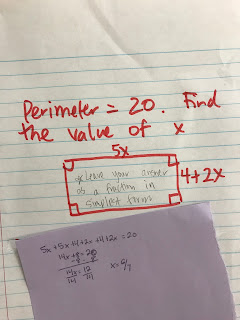 Perimeter = 20. Find
the value of x
5x
*Leave your answer
as a fraction in
simplest form
4+2x
5x+5x+4+2x+4+2x=20
14x+8=20
-8 -8
14x=12
14 14
x=6/7